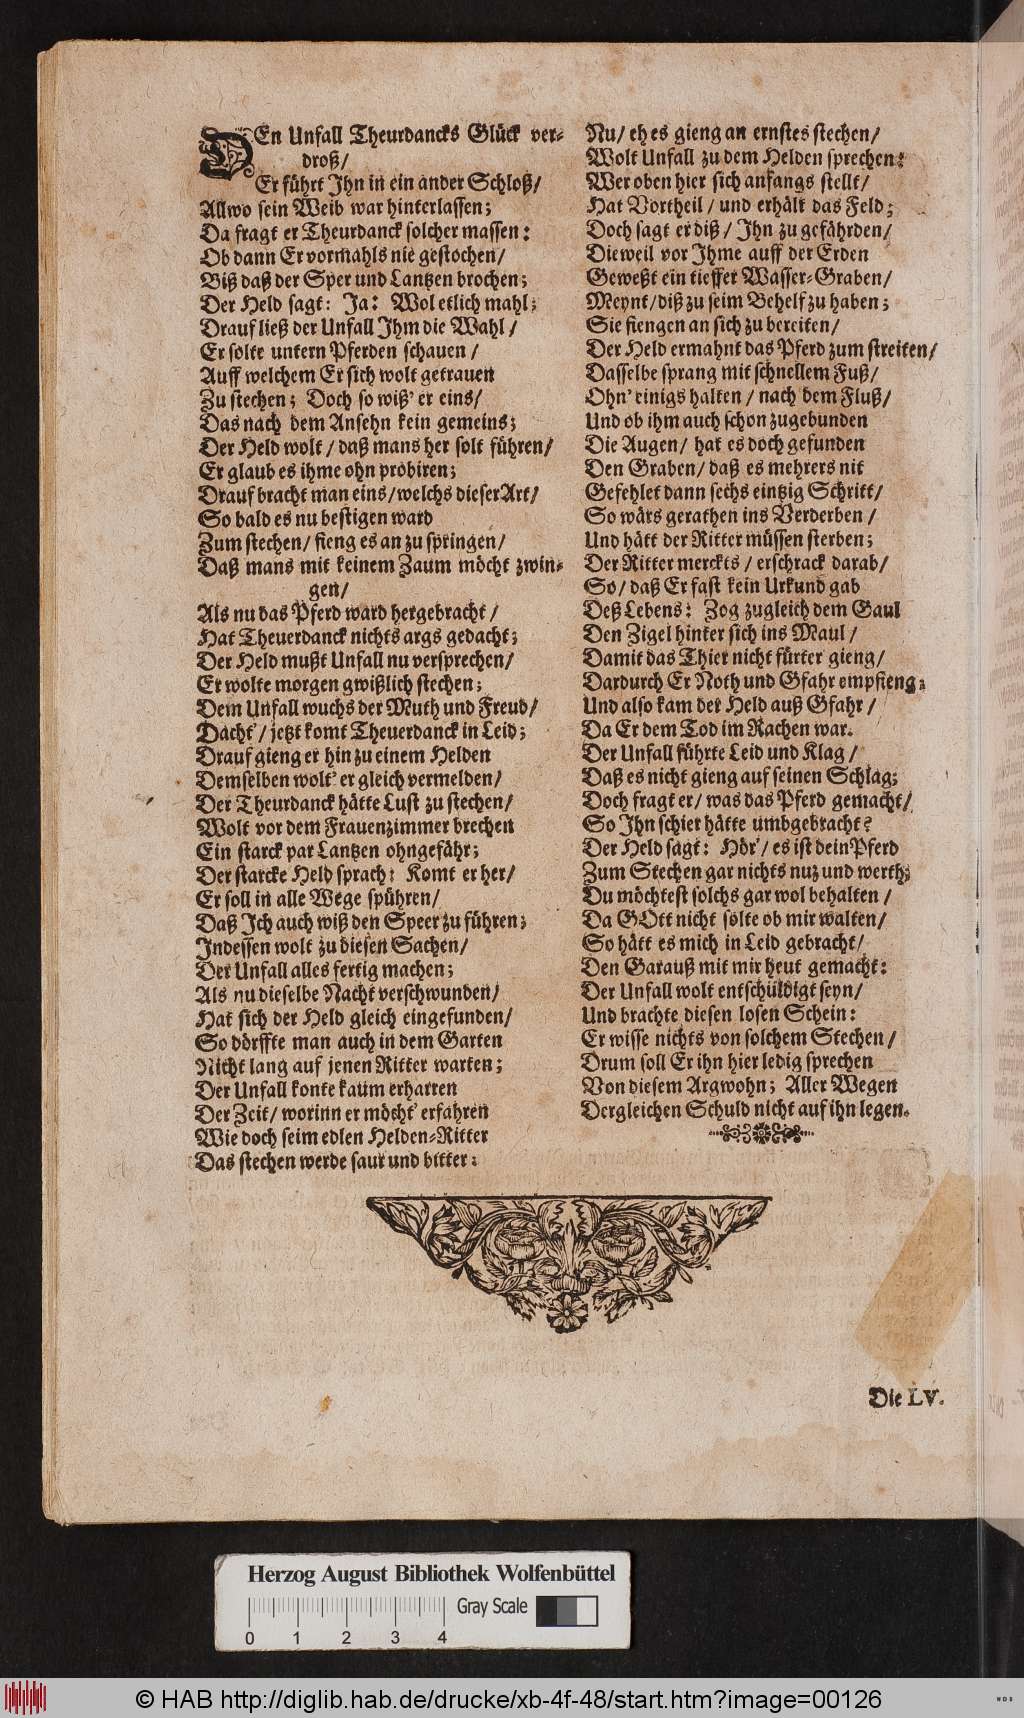 DEn Unfall Theurdancks Glück ver-
droß/
Er führt Ihn in ein ander Schloß/
Allwo sein Weib war hinterlassen;
Da fragt er Theurdanck solcher massen:
Ob dann Er vormahls nie gestochen/
Biß daß der Sper und Lantzen brochen;
Der Held sagt: Ja: Wol etlich mahl;
Drauf ließ der Unfall Ihm die Wahl/
Er solte untern Pferden schauen/
Auff welchem Er sich wolt getrauen
Zu stechen; Doch so wiß' er eins/
Das nach dem Ansehn kein gemeins;
Der Held wolt/ daß mans her solt führen/
Er glaub es ihme ohn probiren;
Drauf bracht man eins/ welchs dieser Art/
So bald es nu bestigen ward
Zum stechen/ fieng es an zu springen/
Daß mans mit keinem Zaum möcht zwin-
gen/
Als nu das Pferd ward hergebracht/
Hat Theuerdanck nichts args gedacht;
Der Held mußt Unfall nu versprechen/
Er wolte morgen gwißlich stechen;
Dem Unfall wuchs der Muth und Freud/
Dächt'/ jetzt komt Theuerdanck in Leid;
Drauf gieng er hin zu einem Helden
Demselben wolt' er gleich vermelden/
Der Theurdanck hätte Lust zu stechen/
Wolt vor dem Frauenzimmer brechen
Ein starck par Lantzen ohngefähr;
Der starcke Held sprach: Komt er her/
Er soll in alle Wege spühren/
Daß Ich auch wiß den Speer zu führen;
Indessen wolt zu diesen Sachen/
Der Unfall alles fertig machen;
Als nu dieselbe Nacht verschwunden/
Hat sich der Held gleich eingefunden/
So dörffte man auch in dem Garten
Nicht lang auf jenen Ritter warten;
Der Unfall konte kaum erharren
Der Zeit/ worinn er möcht' erfahren
Wie doch seim edlen Helden-Ritter
Das stechen werde saur und bitter:
Nu/ eh es gieng an ernstes stechen/
Wolt Unfall zu dem Helden sprechen:
Wer oben hier sich anfangs stellt/
Hat Vortheil/ und erhält das Feld;
Doch sagt er diß/ Ihn zu gefährden/
Dieweil vor Ihme auff der Erden
Geweßt ein tieffer Wasser-Graben/
Meynt/ diß zu seim Behelf zu haben;
Sie fiengen an sich zu bereiten/
Der Held ermahnt das Pferd zum streiten/
Dasselbe sprang mit schnellem Fuß/
Ohn' einigs halten/ nach dem Fluß/
Und ob ihm auch schon zugebunden
Die Augen/ hat es doch gefunden
Den Graben/ daß es mehrers nit
Gefehlet dann sechs eintzig Schritt/
So wärs gerathen ins Verderben/
Und hätt der Ritter müssen sterben;
Der Ritter merckts/ erschrack darab/
So/ daß Er fast kein Urkund gab
Deß Lebens: Zog zugleich dem Gaul
Den Zigel hinter sich ins Maul/
Damit das Thier nicht fürter gieng/
Dardurch Er Noth und Gfahr empfieng;
Und also kam der Held auß Gfahr/
Da Er dem Tod im Rachen war.
Der Unfall führte Leid und Klag/
Daß es nicht gieng auf seinen Schlag;
Doch fragt er/ was das Pferd gemacht/
So Ihn schier hätte umbgebracht?
Der Held sagt: Hör'/ es ist dein Pferd
Zum Stechen gar nichts nuz und werth;
Du möchtest solchs gar wol behalten/
Da GOtt nicht solte ob mir walten/
So hätt es mich in Leid gebracht/
Den Garauß mit mir heut gemacht:
Der Unfall wolt entschüldigt seyn/
Und brachte diesen losen Schein:
Er wisse nichts von solchem Stechen/
Drum soll Er ihn hier ledig sprechen
Von diesem Argwohn; Aller Wegen
Dergleichen Schuld nicht auf ihn legen.
Die LV.
Herzog August Bibliothek Wolfenbüttel
Gray Scale
0 1 2 3 4
© HAB http://diglib.hab.de/drucke/xb-4f-48/start.htm?image=00126